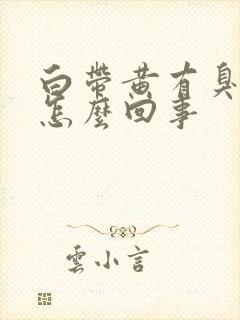 白帶黃有臭
怎麼回事
雲小言